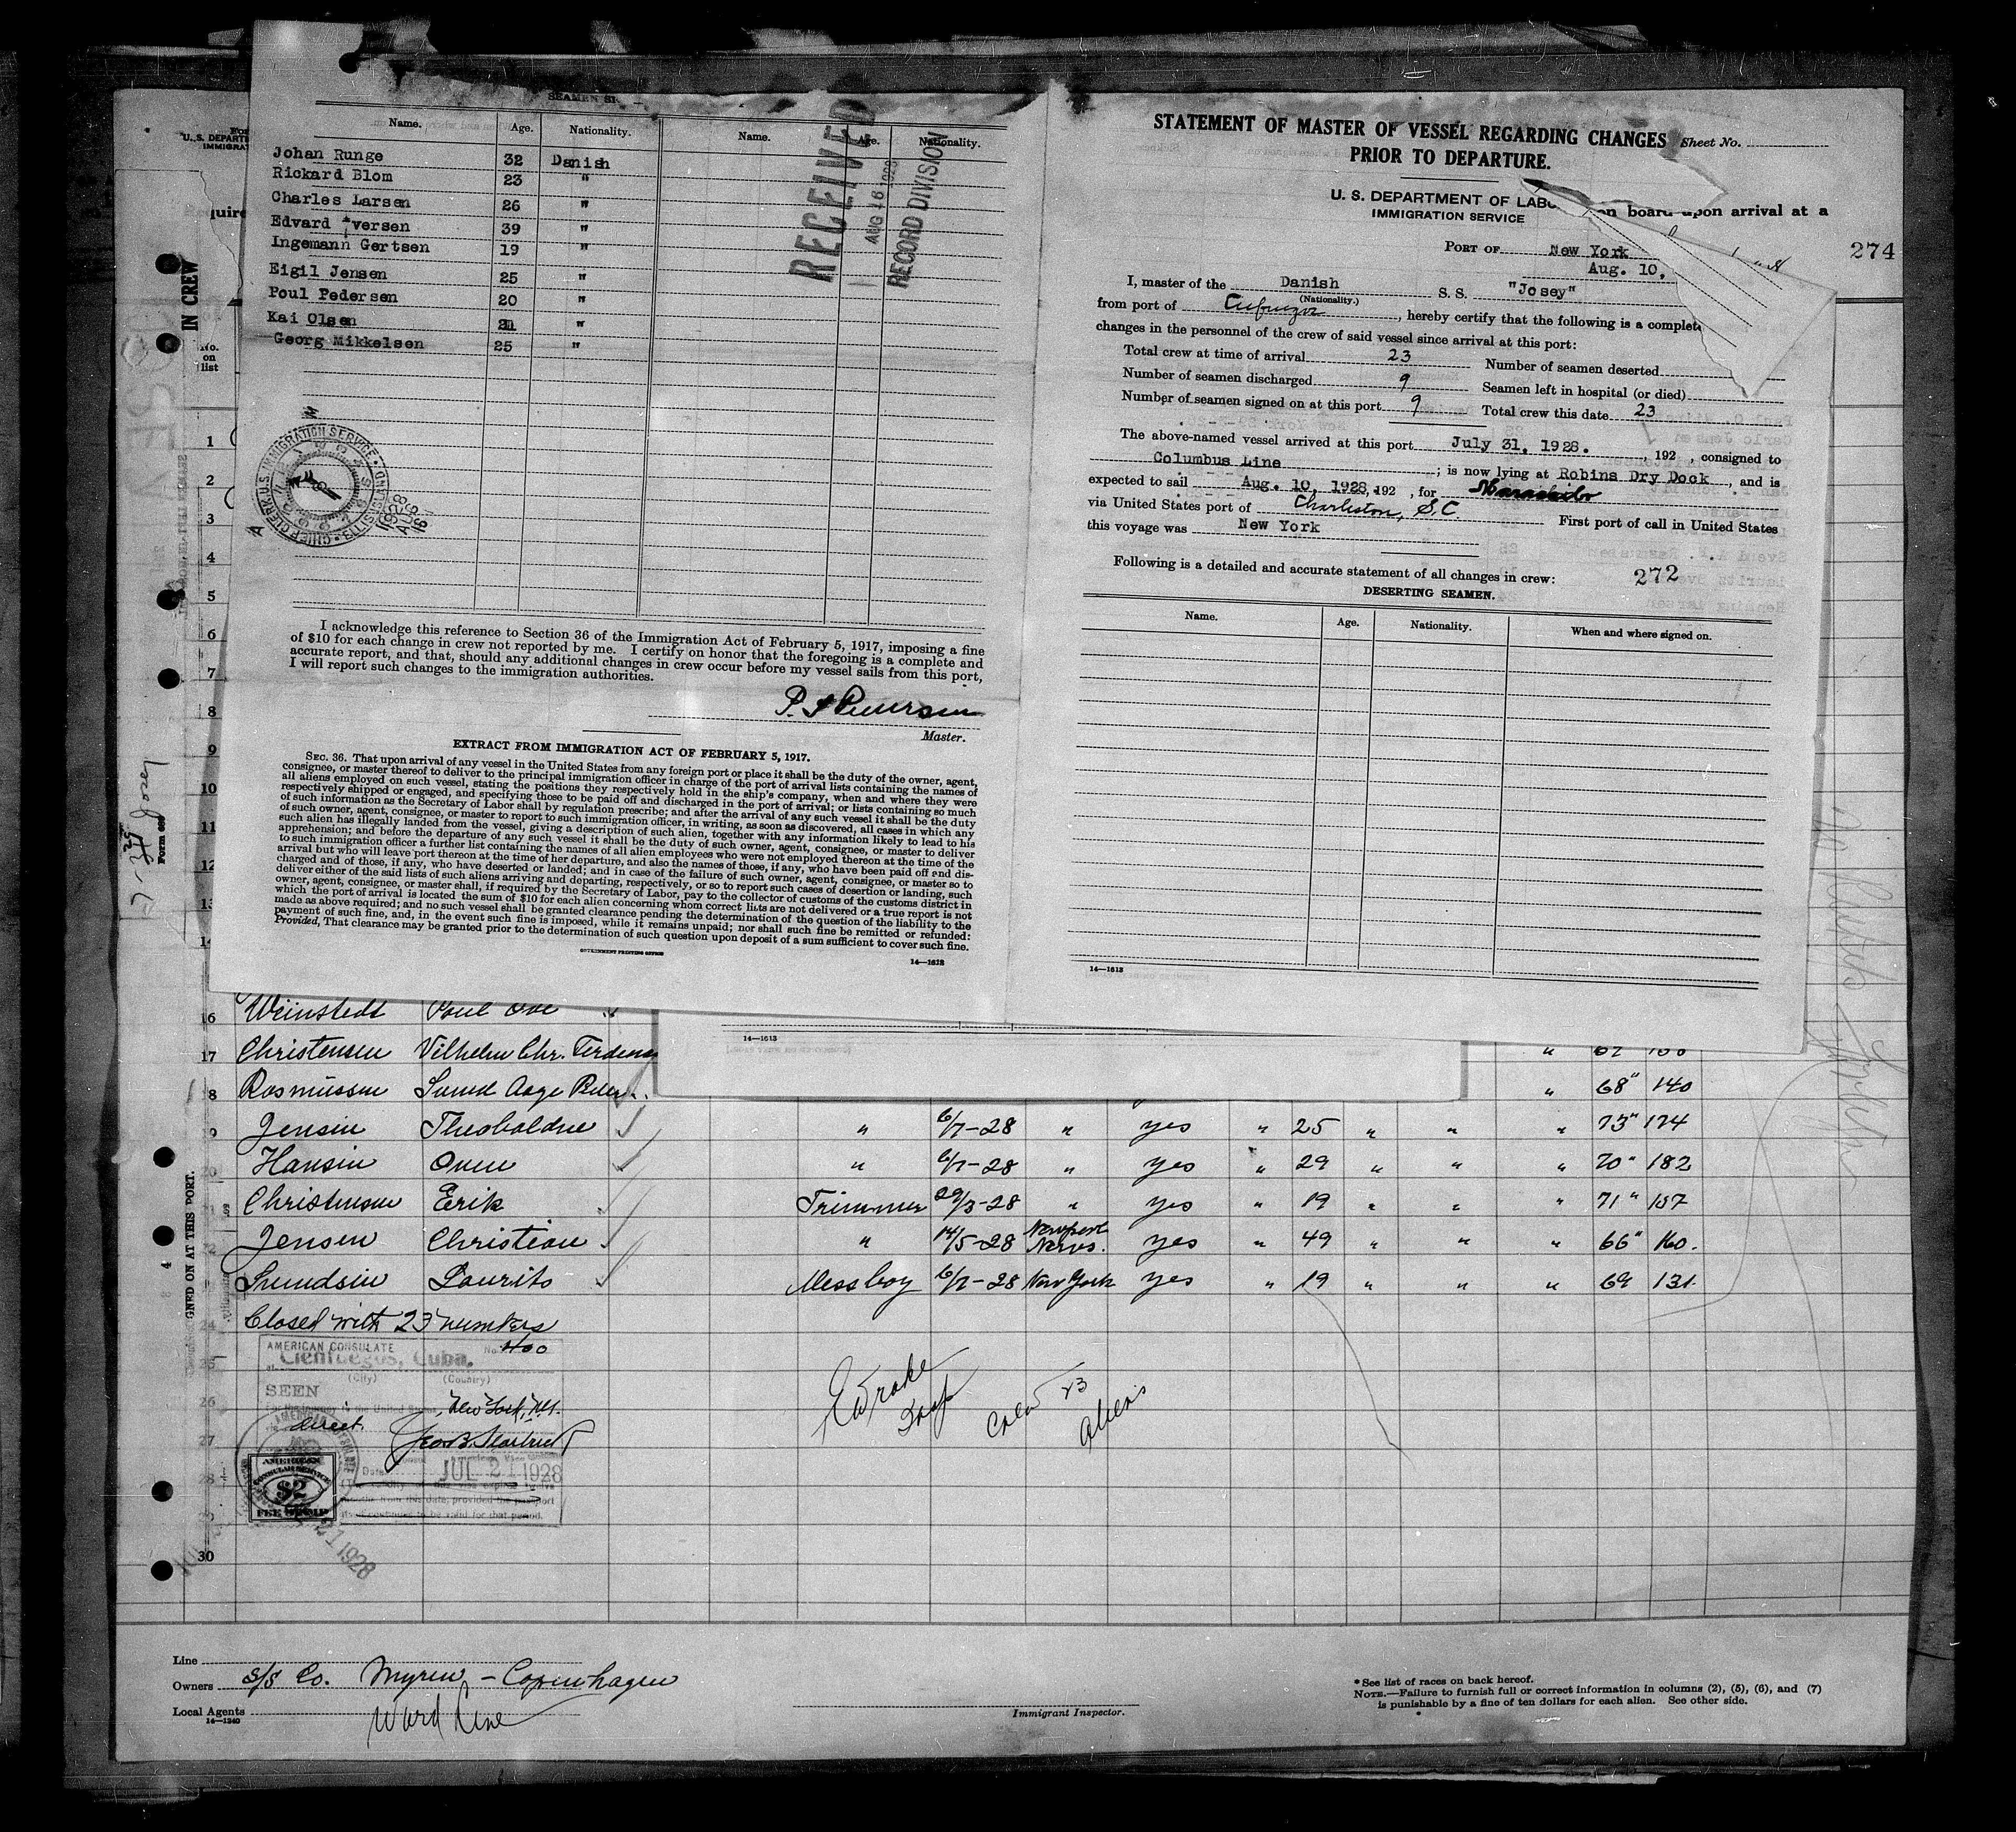 SEAMEN SI
Name. Age. Nationality. Name. Age. Nationality.
Johan Runge 32 Danish
Rickard Blom 23 "
Charles Larsen 26 "
Edvard Iversen 39 "
Ingemann Gertsen 19 "
Eigil Jensen 25 "
Poul Pedersen 20 "
Kai Olsen 21 "
Georg Mikkelsen 25 "
RECEIVED
AUG 16 1928
RECORD DIVISION
CHIEF CLERK U.S. IMMIGRATION SERVICE
I acknowledge this reference to Section 36 of the Immigration Act of February 5, 1917, imposing a fine
of $10 for each change in crew not reported by me. I certify on honor that the foregoing is a complete and
accurate report, and that, should any additional changes in crew occur before my vessel sails from this port,
I will report such changes to the immigration authorities.
Master.
EXTRACT FROM IMMIGRATION ACT OF FEBRUARY 5, 1917.
SEC. 36. That upon arrival of any vessel in the United States from any foreign port or place it shall be the duty of the owner, agent,
consignee, or master thereof to deliver to the principal immigration officer in charge of the port of arrival lists containing the names of
all aliens employed on such vessel, stating the positions they respectively hold in the ship's company, when and where they were
respectively shipped or engaged, and specifying those to be paid off and discharged in the port of arrival; or lists containing so much
of such information as the Secretary of Labor shall by regulation prescribe; and after the arrival of any such vessel it shall be the duty
of such owner, agent, consignee, or master to report to such immigration officer, in writing, as soon as discovered, all cases in which any
such alien has illegally landed from the vessel, giving a description of such alien, together with any information likely to lead to his
apprehension; and before the departure of any such vessel it shall be the duty of such owner, agent, consignee, or master to deliver
to such immigration officer a further list containing the names of all alien employees who were not employed thereon at the time of the
arrival but who will leave port thereon at the time of her departure, and also the names of those, if any, who have been paid off and dis-
charged and of those, if any, who have deserted or landed; and in case of the failure of such owner, agent, consignee, or master so to
deliver either of the said lists of such aliens arriving and departing, respectively, or so to report such cases of desertion or landing, such
owner, agent, consignee, or master shall, if required by the Secretary of Labor, pay to the collector of customs of the customs district in
which the port of arrival is located the sum of $10 for each alien concerning whom correct lists are not delivered or a true report is not
made as above required; and no such vessel shall be granted clearance pending the determination of the question of the liability to the
payment of such fine, and, in the event such fine is imposed, while it remains unpaid; nor shall such fine be remitted or refunded:
Provided, That clearance may be granted prior to the determination of such question upon deposit of a sum sufficient to cover such fine.
GOVERNMENT PRINTING OFFICE
14—1613
STATEMENT OF MASTER OF VESSEL REGARDING CHANGES
PRIOR TO DEPARTURE.
Sheet No.
U. S. DEPARTMENT OF LABO
IMMIGRATION SERVICE
on board upon arrival at a
274
PORT OF New York
Aug. 10,
I, master of the Danish S. S. "Josey"
(Nationality.)
from port of , hereby certify that the following is a complete
changes in the personnel of the crew of said vessel since arrival at this port:
Total crew at time of arrival 23 Number of seamen deserted
Number of seamen discharged 9 Seamen left in hospital (or died)
Number of seamen signed on at this port 9 Total crew this date 23
The above-named vessel arrived at this port July 31, 1928. , 192 , consigned to
Columbus Line ; is now lying at Robins Dry Dock , and is
expected to sail Aug. 10, 1928, 192 , for Maracaibo
via United States port of Charleston, S.C. First port of call in United States
this voyage was New York
Following is a detailed and accurate statement of all changes in crew: 272
DESERTING SEAMEN.
Name. Age. Nationality. When and where signed on.
14—1613
U. S. DEPARTM
IMMIGRAT
equire
IN CREW
No.
on
list
1
2
3
4
5
6
7
8
9
10
11
12
13
14
7-31 Josey
GNED ON AT THIS PORT.
14—1613
16 Weinstedt Poul Ove
17 Christensen Vilhelm Chr. Ferdinan
18 Rasmussen Svend Aage Peter " 68" 140
19 Jensen Theobaldne " 6/7-28 " yes " 25 " " " 73" 174
20 Hansen Oven " 6/7-28 " yes " 29 " " " 70" 182
21 Christensen Erik Trimmer 29/3-28 " yes " 19 " " " 71" 157
22 Jensen Christian " 14/5-28 Newport News. yes " 49 " " " 66" 160.
23 Svendsen Laurits Messboy 6/7-28 New York yes " 19 " " " 69 131
24 Closed with 23 numbers
25
26
27
28
29
30
AMERICAN CONSULATE No. 400
Cienfuegos, Cuba.
(City) (Country)
SEEN
New York, N.Y.
direct.
JUL 21 1928
AMERICAN
CONSULAR SERVICE
$2
FEE STAMP
21 1928
Crew 23
Aliens
Line
Owners S/S Co. Myren - Copenhagen
Local Agents Ward Line
14—1240
Immigrant Inspector.
* See list of races on back hereof.
NOTE.—Failure to furnish full or correct information in columns (2), (5), (6), and (7)
is punishable by a fine of ten dollars for each alien. See other side.